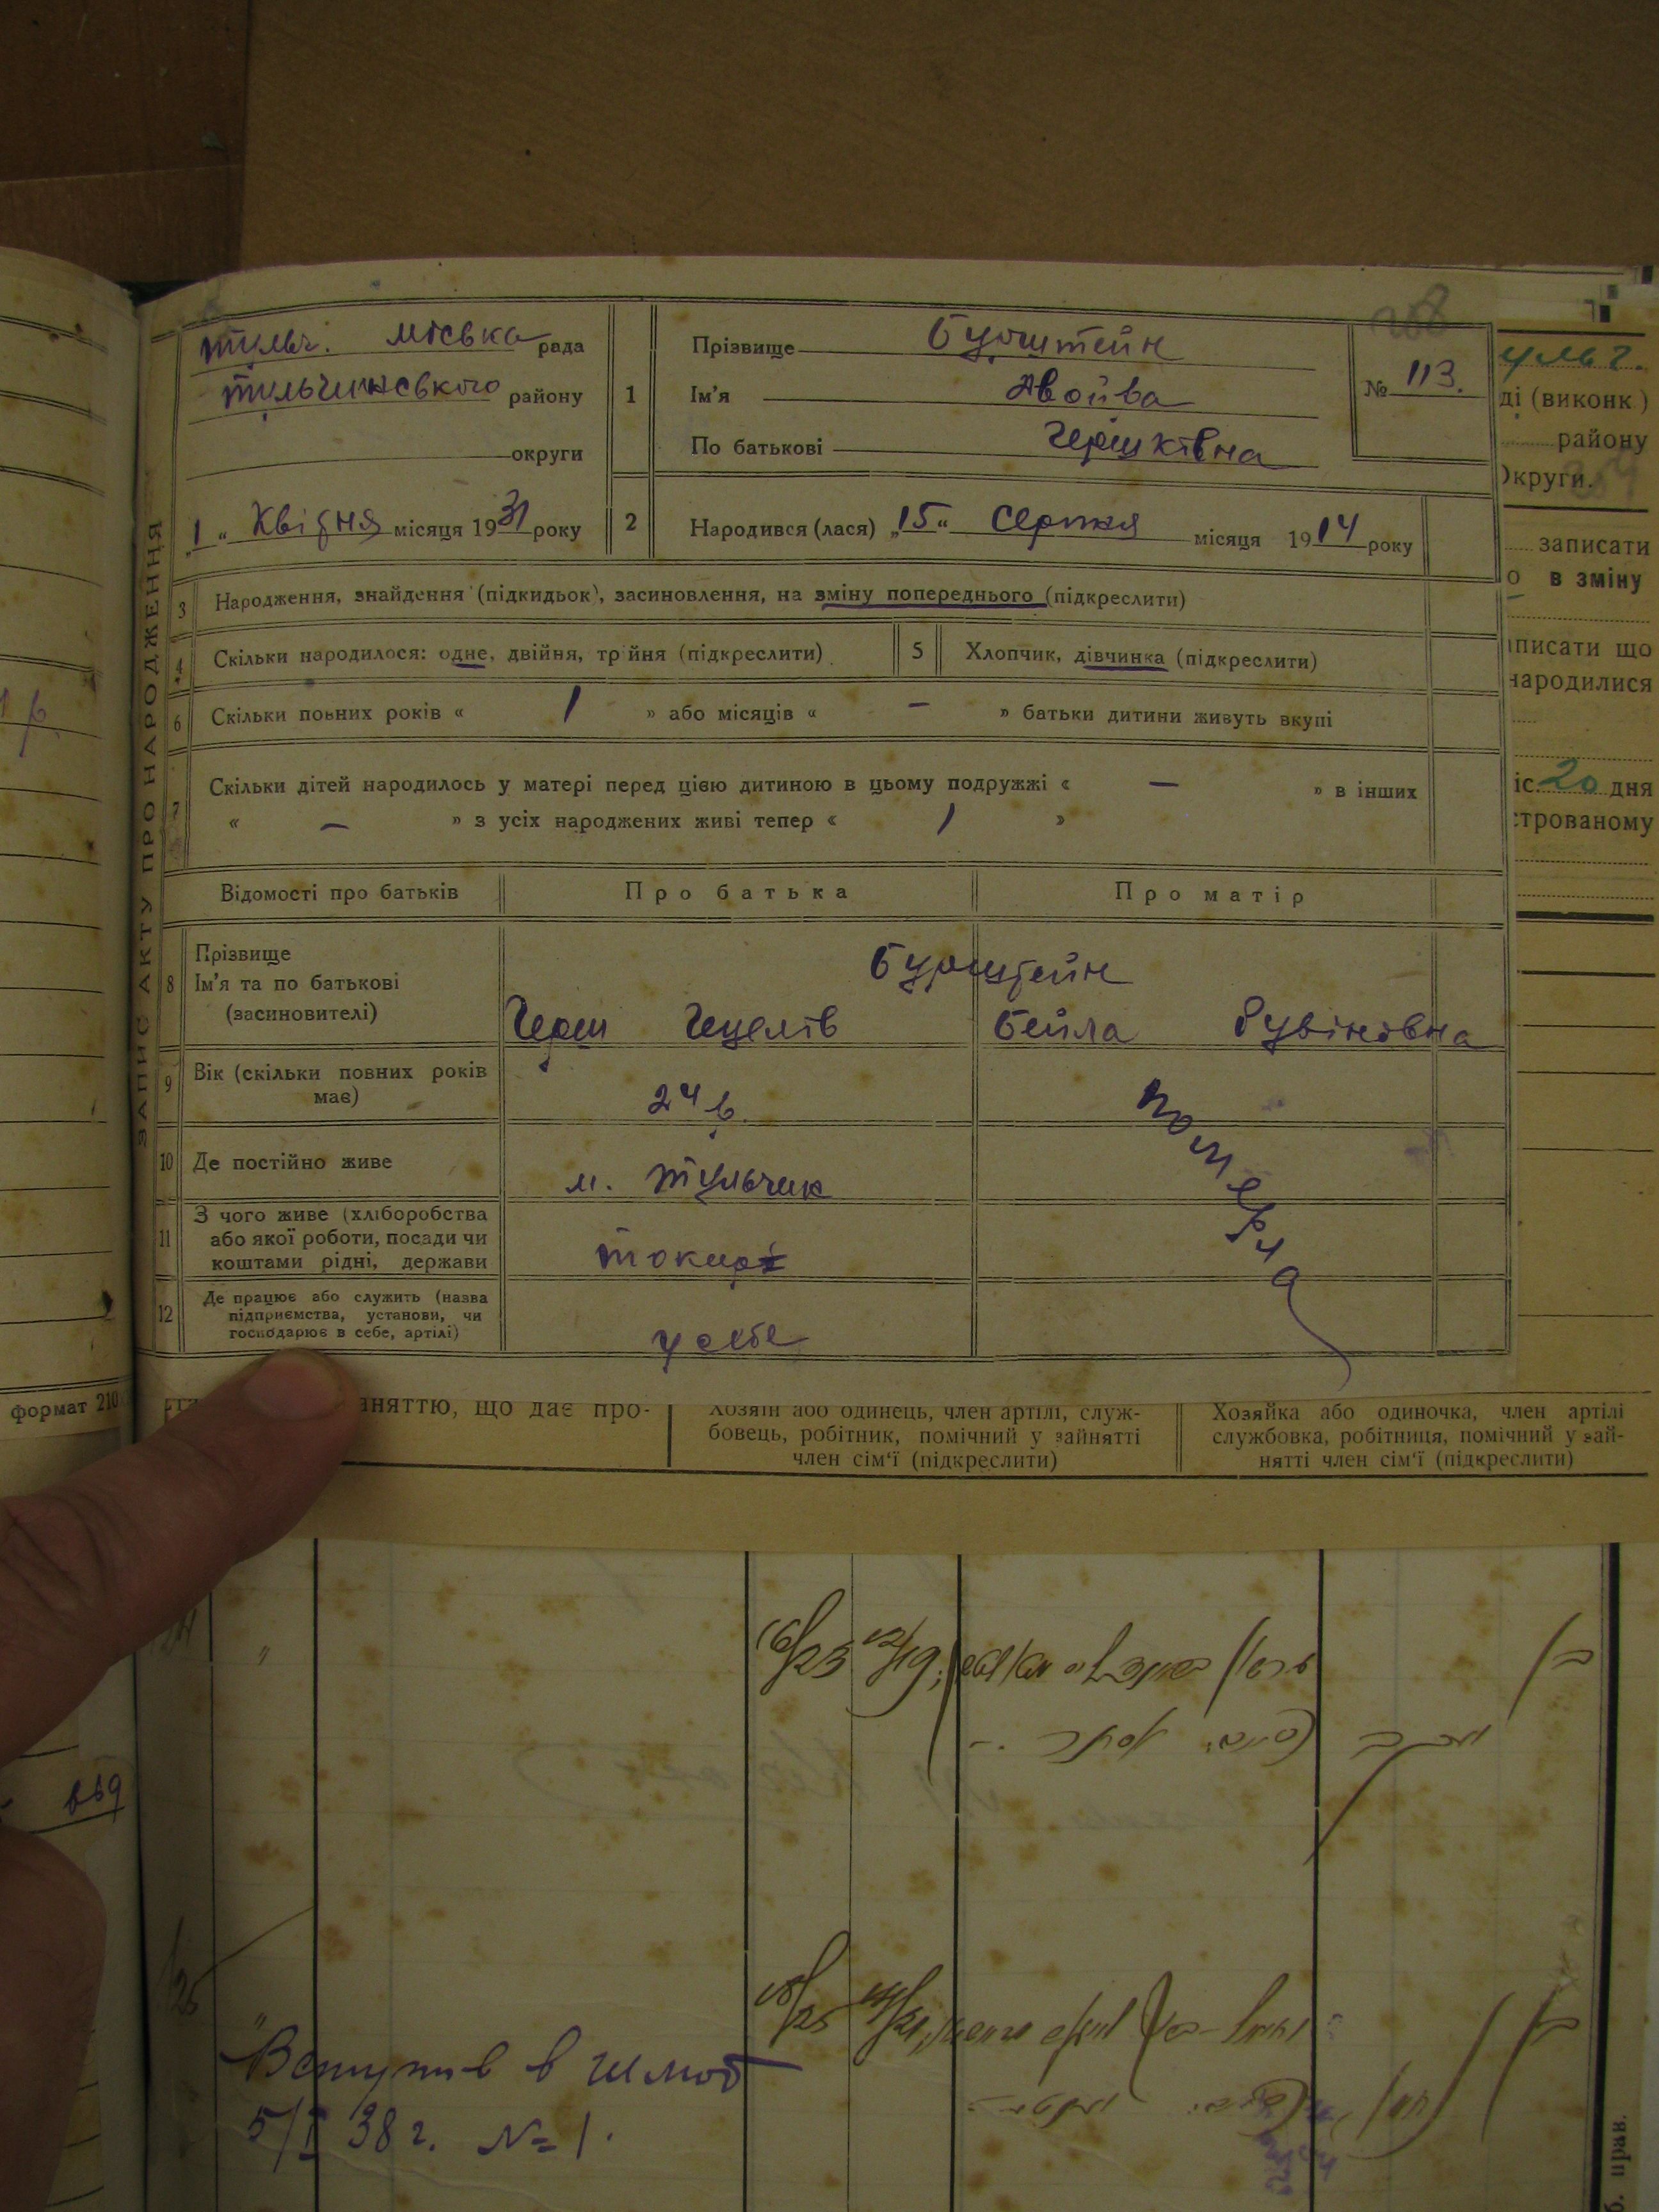 тульч. міська рада
тульчинського району
округи
1 „ Квітня місяця 1931 року
1
Прізвище Бурштейн
Ім'я Двойва
По батькові Гершківна
№ 113.
2
Народився (лася) „15„ Серпня місяця 1914 року
ЗАПИС АКТУ ПРО НАРОДЖЕННЯ
3 Народження, знайдення (підкидьок), засиновлення, на зміну попереднього (підкреслити)
4 Скільки народилося: одне, двійня, трійня (підкреслити)
5 Хлопчик, дівчинка (підкреслити)
6 Скільки повних років « 1 » або місяців « — » батьки дитини живуть вкупі
7 Скільки дітей народилось у матері перед цією дитиною в цьому подружжі « — » в інших
« — » з усіх народжених живі тепер « 1 »
Відомості про батьків Про батька Про матір
8 Прізвище
Ім'я та по батькові
(засиновителі)
Бурштейн
Герш Гецелів Бейла Рувінівна
9 Вік (скільки повних років
має)
24 р.
померла
10 Де постійно живе м. Тульчин
11 З чого живе (хліборобства
або якої роботи, посади чи
коштами рідні, держави
токар
12 Де працює або служить (назва
підприємства, установи, чи
господарює в себе, артілі)
у себе
ульч.
ді (виконк.)
району
Округи.
записати
о в зміну
писати що
народилися
іс. 20 дня
строваному
формат 210
аняттю, що дає про-
Хозяїн або одинець, член артілі, служ-
бовець, робітник, помічний у зайнятті
член сім'ї (підкреслити)
Хозяйка або одиночка, член артілі
службовка, робітниця, помічний у зай-
нятті член сім'ї (підкреслити)
16/23 12/19
18/25
Вступив в шлюб
5/I 38 г. № 1.
б. прав.